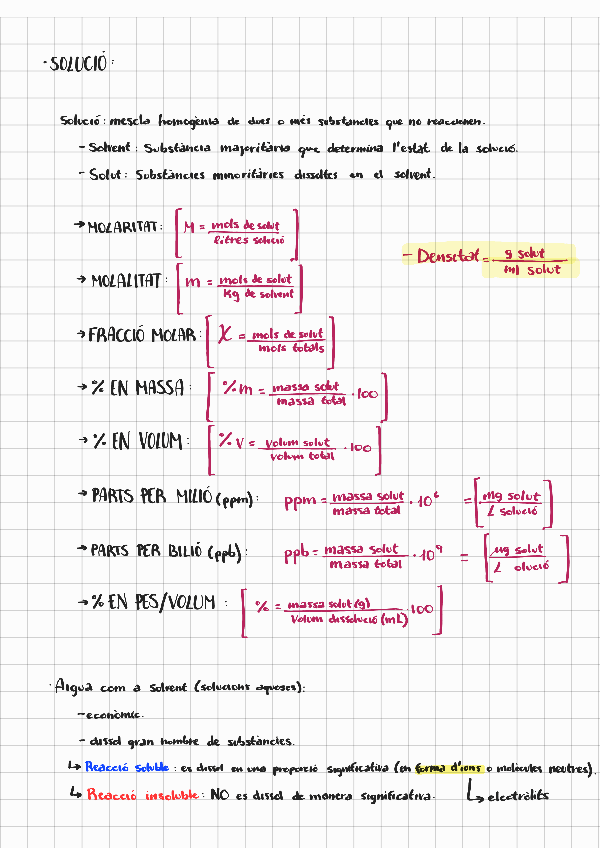 · SOLUCIÓ:
Solució: mescla homogènia de dues o més substàncies que no reaccionen.
- Solvent: Substància majoritària que determina l'estat de la solució.
- Solut: Substàncies minoritàries dissoltes en el solvent.
→ MOLARITAT: [M = mols de solut / litres solució]
- Densitat = g solut / ml solut
→ MOLALITAT: [m = mols de solut / Kg de solvent]
→ FRACCIÓ MOLAR: [X = mols de solut / mols totals]
→ % EN MASSA: [%m = massa solut / massa total · 100]
→ % EN VOLUM: [%V = volum solut / volum total · 100]
→ PARTS PER MILIÓ (ppm): ppm = massa solut / massa total · 10⁶ = [mg solut / L solució]
→ PARTS PER BILIÓ (ppb): ppb = massa solut / massa total · 10⁹ = [μg solut / L olució]
→ % EN PES/VOLUM : [% = massa solut (g) / Volum dissolució (mL) · 100]
· Aigua com a solvent (solucions aquoses):
- econòmic.
- dissol gran nombre de substàncies.
↳ Reacció soluble: es dissol en una proporció significativa (en forma d'ions o molècules neutres).
↳ Reacció insoluble: NO es dissol de manera significativa. ↳ electròlits